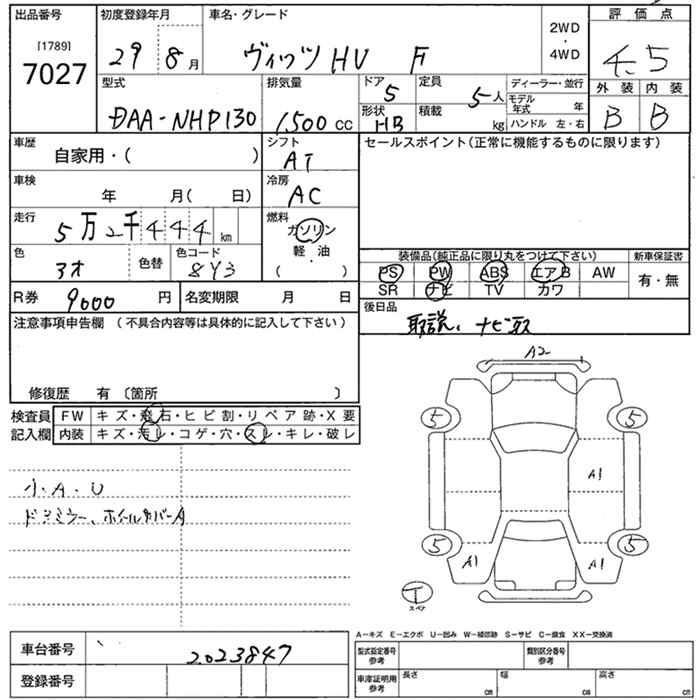 出品番号 初度登録年月 車名・グレード 評価点
[1789] 7027 29 8月 ヴィッツ HV F 2WD・4WD 4.5
型式 排気量 ドア 5 定員 5人 ディーラー・並行 外装 内装
DAA-NHP130 1,500 cc 形状 HB 積載 kg モデル年式 年 ハンドル 左・右 B B
車歴 自家用・( ) シフト AT セールスポイント(正常に機能するものに限ります)
車検 年 月( 日) 冷房 AC
走行 5万2千444km 燃料 ガソリン 軽・油 ( )
色 色替 色コード 8Y3 装備品(純正品に限り丸をつけて下さい) 新車保証書
PS PW ABS エアB AW 有・無
SR ナビ TV カワ
R券 9000円 名変期限 月 日 後日品
注意事項申告欄 (不具合内容等は具体的に記入して下さい) 取説、ナビ取
修復歴 有 〔箇所 〕 A2
検査員 FW キズ・飛石・ヒビ割・リペア跡・X要 5 5
記入欄 内装 キズ・汚レ・コゲ・穴・スレ・キレ・破レ
A1
小・A・U
ドアミラー、ホイールカバーA
5 5
A1 A1
T スペア
A−キズ E−エクボ U−凹み W−補修跡 S−サビ C−腐食 XX−交換済
車台番号 2023847 型式指定番号 参考 類別区分番号 参考
登録番号 車庫証明用 参考 長さ cm 幅 cm 高さ cm